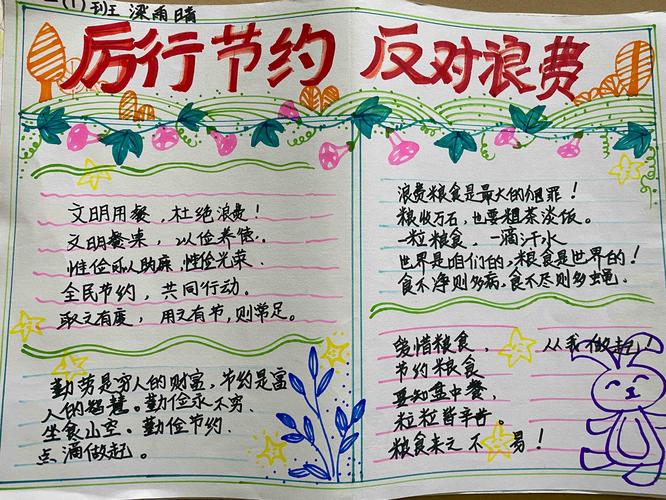 一(1)班 梁雨晴
厉行节约 反对浪费
文明用餐，杜绝浪费！
文明餐桌，以俭养德．
惟俭可以助廉，惟俭光荣．
全民节约，共同行动．
取之有度，用之有节，则常足．
勤劳是穷人的财富，节约是富
人的智慧。勤俭永不穷．
坐食山空。勤俭节约．
点滴做起．
浪费粮食是最大的犯罪！
粮收万石，也要粗茶淡饭。
一粒粮食．一滴汗水
世界是咱们的，粮食是世界的！
食不净则多病，食不尽则多蝇．
爱惜粮食， 从我做起！
节约粮食
要知盘中餐，
粒粒皆辛苦．
粮食来之 不易！